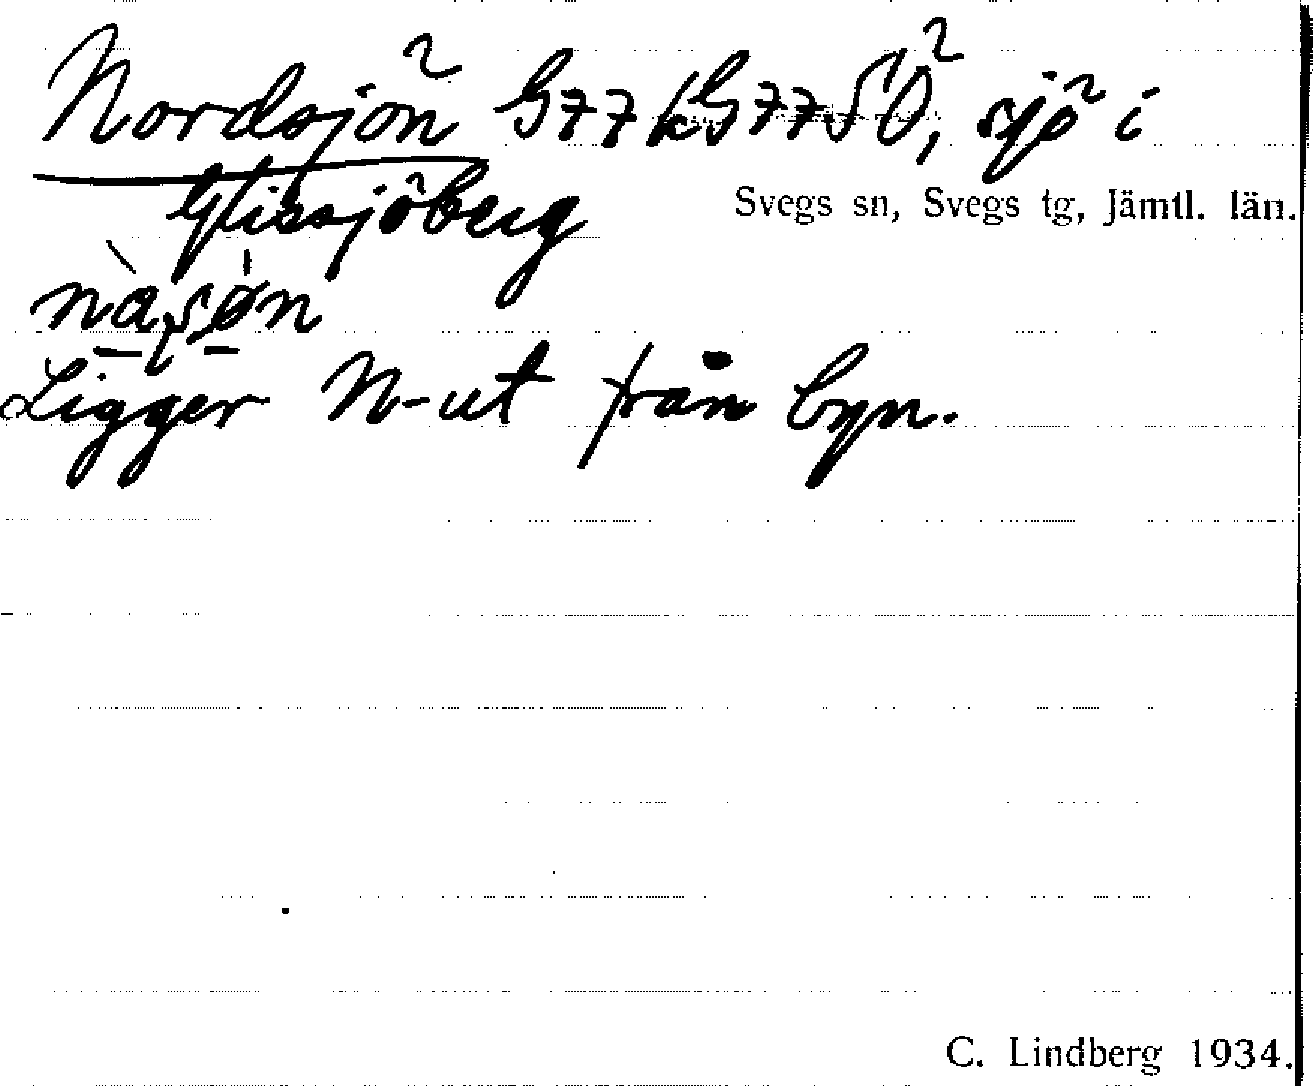 Nordsjön G77kG77SÖ, sjö i
Glissjöberg
Svegs sn, Svegs tg, Jämtl. län.
Ligger N-ut från byn.
C. Lindberg 1934.